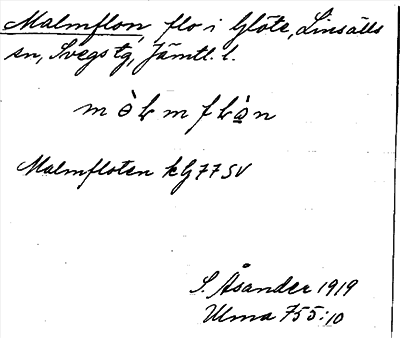 Malmflon, flo i Glöte, Linsälls
sn, Svegs tg, Jämtl. l.
Malmfloten kG77SV
S. Åsander 1919
Ulma 755:10